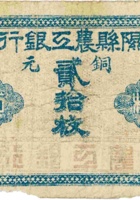 隰縣農工銀行
銅元
貳拾枚